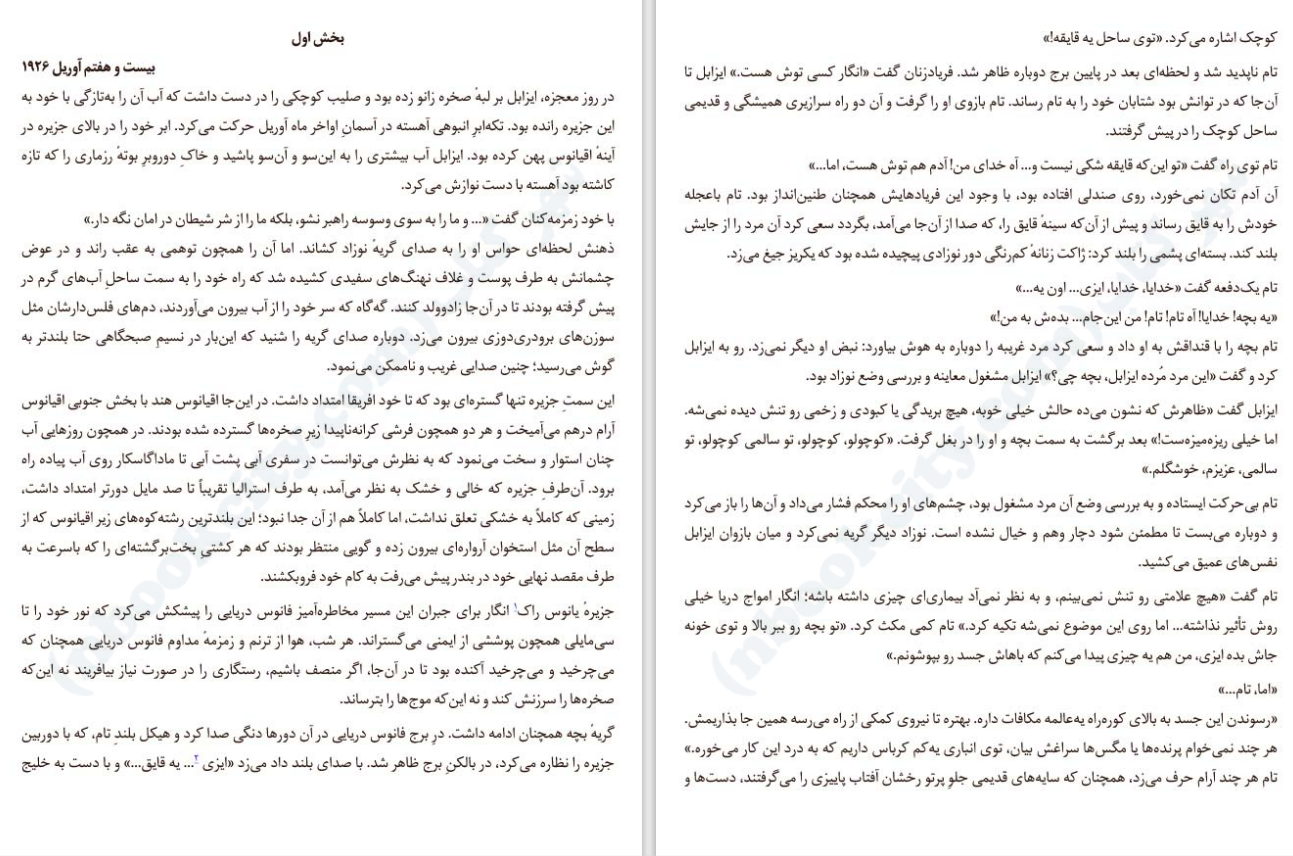 بخش اول
بیست و هفتم آوریل ۱۹۲۶
در روز معجزه، ایزابل بر لبهٔ صخره زانو زده بود و صلیب کوچکی را در دست داشت که آب آن را به‌تازگی با خود به
این جزیره رانده بود. تکه‌ابرِ انبوهی آهسته در آسمانِ اواخر ماه آوریل حرکت می‌کرد. ابر خود را در بالای جزیره در
آینهٔ اقیانوس پهن کرده بود. ایزابل آب بیشتری را به این‌سو و آن‌سو پاشید و خاکِ دوروبرِ بوتهٔ رزماری را که تازه
کاشته بود آهسته با دست نوازش می‌کرد.
با خود زمزمه‌کنان گفت «... و ما را به سوی وسوسه راهبر نشو، بلکه ما را از شر شیطان در امان نگه دار.»
ذهنش لحظه‌ای حواس او را به صدای گریهٔ نوزاد کشاند. اما آن را همچون توهمی به عقب راند و در عوض
چشمانش به طرف پوست و غلاف نهنگ‌های سفیدی کشیده شد که راه خود را به سمت ساحلِ آب‌های گرم در
پیش گرفته بودند تا در آن‌جا زادوولد کنند. گه‌گاه که سر خود را از آب بیرون می‌آوردند، دم‌های فلس‌دارشان مثل
سوزن‌های برودری‌دوزی بیرون می‌زد. دوباره صدای گریه را شنید که این‌بار در نسیمِ صبحگاهی حتا بلندتر به
گوش می‌رسید؛ چنین صدایی غریب و ناممکن می‌نمود.
این سمتِ جزیره تنها گستره‌ای بود که تا خود افریقا امتداد داشت. در این‌جا اقیانوس هند با بخش جنوبی اقیانوس
آرام درهم می‌آمیخت و هر دو همچون فرشی کرانه‌ناپیدا زیرِ صخره‌ها گسترده شده بودند. در همچون روزهایی آب
چنان استوار و سخت می‌نمود که به نظرش می‌توانست در سفری آبی پشت آبی تا ماداگاسکار روی آب پیاده راه
برود. آن‌طرفِ جزیره که خالی و خشک به نظر می‌آمد، به طرف استرالیا تقریباً تا صد مایل دورتر امتداد داشت،
زمینی که کاملاً به خشکی تعلق نداشت، اما کاملاً هم از آن جدا نبود؛ این بلندترین رشته‌کوه‌های زیر اقیانوس که از
سطح آن مثل استخوان آرواره‌ای بیرون زده و گویی منتظر بودند که هر کشتیِ بخت‌برگشته‌ای را که باسرعت به
طرف مقصد نهایی خود در بندر پیش می‌رفت به کام خود فروبکشند.
جزیرهٔ یانوس راک۱ انگار برای جبران این مسیر مخاطره‌آمیز فانوس دریایی را پیشکش می‌کرد که نور خود را تا
سی‌مایلی همچون پوششی از ایمنی می‌گستراند. هر شب، هوا از ترنم و زمزمهٔ مداوم فانوس دریایی همچنان که
می‌چرخید و می‌چرخید آکنده بود تا در آن‌جا، اگر منصف باشیم، رستگاری را در صورت نیاز بیافریند نه این‌که
صخره‌ها را سرزنش کند و نه این‌که موج‌ها را بترساند.
گریهٔ بچه همچنان ادامه داشت. درِ برج فانوس دریایی در آن دورها دنگی صدا کرد و هیکل بلندِ تام، که با دوربین
جزیره را نظاره می‌کرد، در بالکنِ برج ظاهر شد. با صدای بلند داد می‌زد «ایزی۲ ... یه قایق...» و با دست به خلیج
کوچک اشاره می‌کرد. «توی ساحل یه قایقه!»
تام ناپدید شد و لحظه‌ای بعد در پایین برج دوباره ظاهر شد. فریادزنان گفت «انگار کسی توش هست.» ایزابل تا
آن‌جا که در توانش بود شتابان خود را به تام رساند. تام بازوی او را گرفت و آن دو راه سرازیری همیشگی و قدیمی
ساحل کوچک را در پیش گرفتند.
تام توی راه گفت «تو این‌که قایقه شکی نیست و... آه خدای من! آدم هم توش هست، اما...»
آن آدم تکان نمی‌خورد، روی صندلی افتاده بود، با وجود این فریادهایش همچنان طنین‌انداز بود. تام باعجله
خودش را به قایق رساند و پیش از آن‌که سینهٔ قایق را، که صدا از آن‌جا می‌آمد، بگردد سعی کرد آن مرد را از جایش
بلند کند. بسته‌ای پشمی را بلند کرد: ژاکت زنانهٔ کم‌رنگی دور نوزادی پیچیده شده بود که یکریز جیغ می‌زد.
تام یک‌دفعه گفت «خدایا، خدایا، ایزی... اون یه...»
«یه بچه! خدایا! آه تام! تام! من این‌جام... بده‌ش به من!»
تام بچه را با قنداقش به او داد و سعی کرد مرد غریبه را دوباره به هوش بیاورد: نبض او دیگر نمی‌زد. رو به ایزابل
کرد و گفت «این مرد مُرده ایزابل، بچه چی؟» ایزابل مشغول معاینه و بررسی وضع نوزاد بود.
ایزابل گفت «ظاهرش که نشون می‌ده حالش خیلی خوبه، هیچ بریدگی یا کبودی و زخمی رو تنش دیده نمی‌شه.
اما خیلی ریزه‌میزه‌ست!» بعد برگشت به سمت بچه و او را در بغل گرفت. «کوچولو، کوچولو، تو سالمی کوچولو، تو
سالمی، عزیزم، خوشگلم.»
تام بی‌حرکت ایستاده و به بررسی وضع آن مرد مشغول بود، چشم‌های او را محکم فشار می‌داد و آن‌ها را باز می‌کرد
و دوباره می‌بست تا مطمئن شود دچار وهم و خیال نشده است. نوزاد دیگر گریه نمی‌کرد و میان بازوان ایزابل
نفس‌های عمیق می‌کشید.
تام گفت «هیچ علامتی رو تنش نمی‌بینم، و به نظر نمی‌آد بیماری‌ای چیزی داشته باشه؛ انگار امواج دریا خیلی
روش تأثیر نذاشته... اما روی این موضوع نمی‌شه تکیه کرد.» تام کمی مکث کرد. «تو بچه رو ببر بالا و توی خونه
جاش بده ایزی، من هم یه چیزی پیدا می‌کنم که باهاش جسد رو بپوشونم.»
«اما، تام...»
«رسوندن این جسد به بالای کوره‌راه یه‌عالمه مکافات داره. بهتره تا نیروی کمکی از راه می‌رسه همین جا بذاریمش.
هر چند نمی‌خوام پرنده‌ها یا مگس‌ها سراغش بیان، توی انباری یه‌کم کرباس داریم که به درد این کار می‌خوره.»
تام هر چند آرام حرف می‌زد، همچنان که سایه‌های قدیمی جلوِ پرتو رخشان آفتاب پاییزی را می‌گرفتند، دست‌ها و